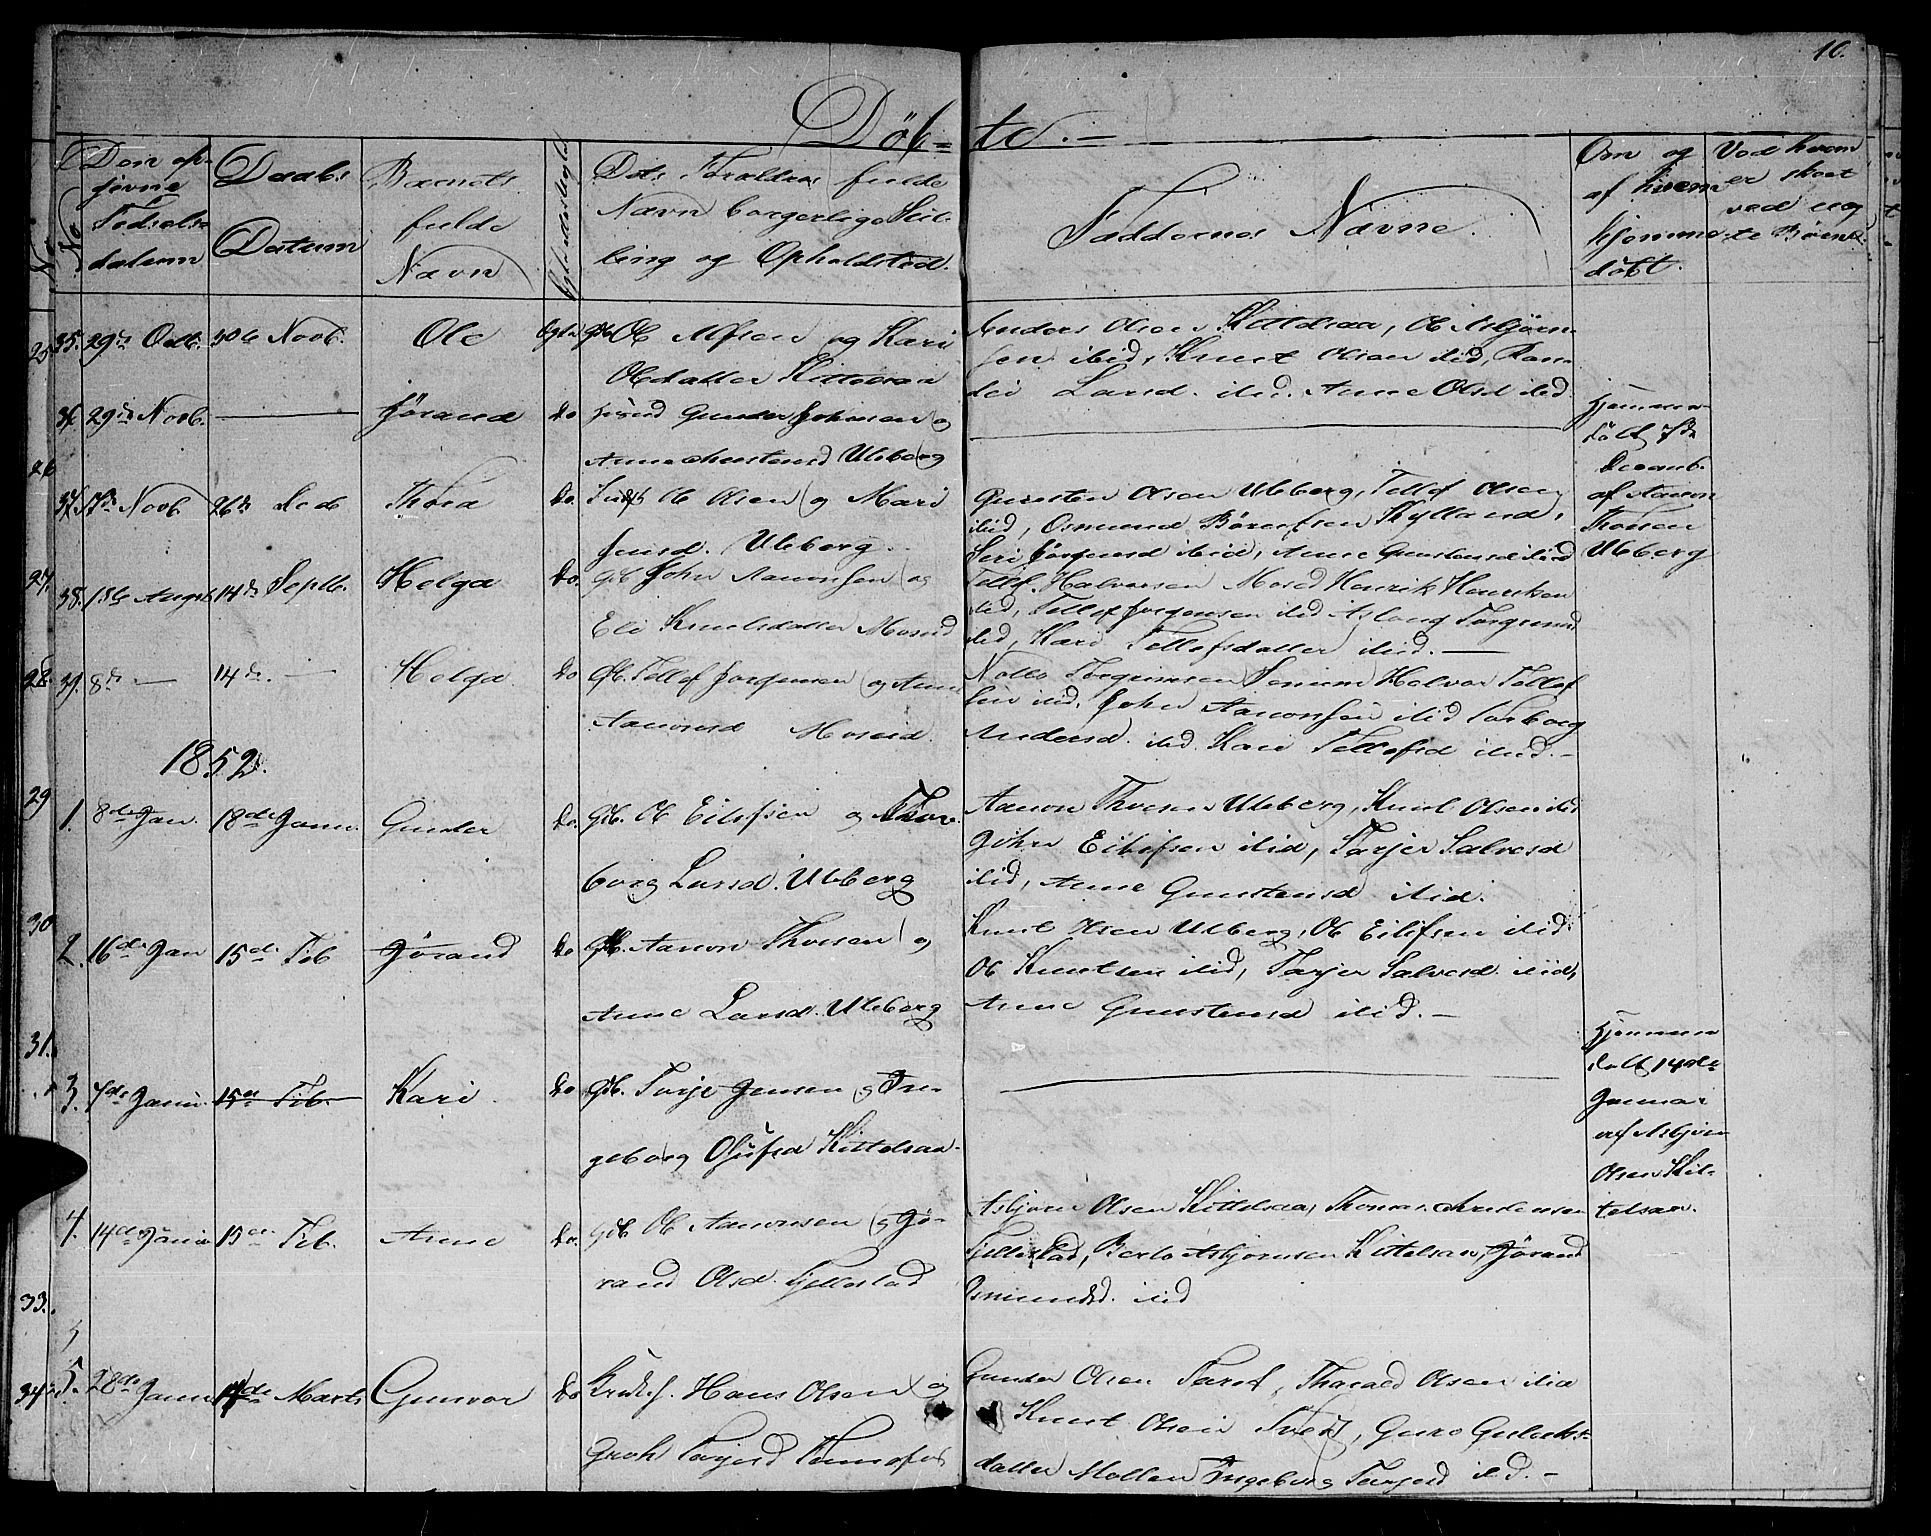 10.
Døb= te.-
No
Den op-
givne
Fødsels-
datum
Daabs
Datum
Barnets
fulde
Navn
Dets Forældres fulde
Navn borgerlige Stil-
ling og Opholdsted.
Faddernes Navne.
Om og
af hvem
hjemme-
døbt.
Ved hvem
er skeet
ved uæg-
te Børn
35. 29de Octb. 30te Novb. Ole
Gb. Ole Alfsen og Kari
Olsdatter Kittelsaa
Anders Olsen Kittelsaa, Ole Asbjørn-
sen ibid, Knut Olsen ibid, Ran-
di Larsd. ibid. Anne Olsd ibid.
36. 29de Novb. Jørand Do
Gunder Johnsen og
Anne Gunstensd Uleberg
hjemme-
døbt 7de
Decemb.
af Aanon
Thorsen
Uleberg
37. Novb. 26de Decb Thora Do.
Ole Olsen og Mari
Jensd. Uleberg.
Gunsten Olsen Uleberg, Tellef Olsen
ibid, Osmund Børufsen Skylland,
Siri Jørgensd ibid, Anne Gunstensd ibid
38. 13de August 14de Septb. Helga Do.
Gb. John Aanonsen og
Eli Knutsdatter Moseid
Tellef Halvorsen Moseid Henrik Henriksen
ibid, Tellef Jørgensen ibid Aslaug Torgrimsd
ibid, Kari Tellefsdatter ibid. —
39. 8de — 14de. — Helga Do
Gb. Tellef Jørgensen og Anne
Aanonsd Moseid.
Torgrimsen Senum Halvor Tellef
sen ibid, John Aanonsen ibid Torborg
Andersd. ibid. Kari Tellefsd ibid. -
1852.
1. 8de Jan. 18de Janu. Gunder Do.
Gb. Ole Eilefsen og Thor-
borg Larsd. Uleberg
Aanon Thorsen Uleberg, Knut Olsen ibid
John Eilefsen ibid, Torjer Salvesd
ibid, Anne Gunstensd ibid.
2. 16de Jan 15de Feb Jørand Do
Gb. Aanon Thorsen og
Anne Larsd. Uleberg
Knut Olsen Uleberg, Ole Eilifsen ibid.
Ole Knutsen ibid, Torjer Salvesd. ibid,
Anne Gunstensd ibid. -
3. 7de Janu. 15de Feb. Kari. Do
Gb. Torje Jensen og In-
geborg Kittelsaa.
hjemme
døbt 14de
Janua-
af Asbjørn
Olsen Kit-
telsaa.
4. 14de Janu 15de Feb. Anne Do.
Gb Ole Aanonsen og Jø-
rand Olsd. Fjellestad
Asbjørn Olsen Kittelsaa, Thomas Andersen
Fjellestad, Berte Asbjørnsen Kittelsaa, Jørand
Osmundsd. ibid
5. 28de Janu 14de Marts Gunvor Do
Hans Olsen og
Groh Torjusd
Gunder Olsen, Tharald Olsen ibid
Knut Olsen Tveit, Guro Guleks-
datter Mollen Ingeborg Torjusd ibid. -